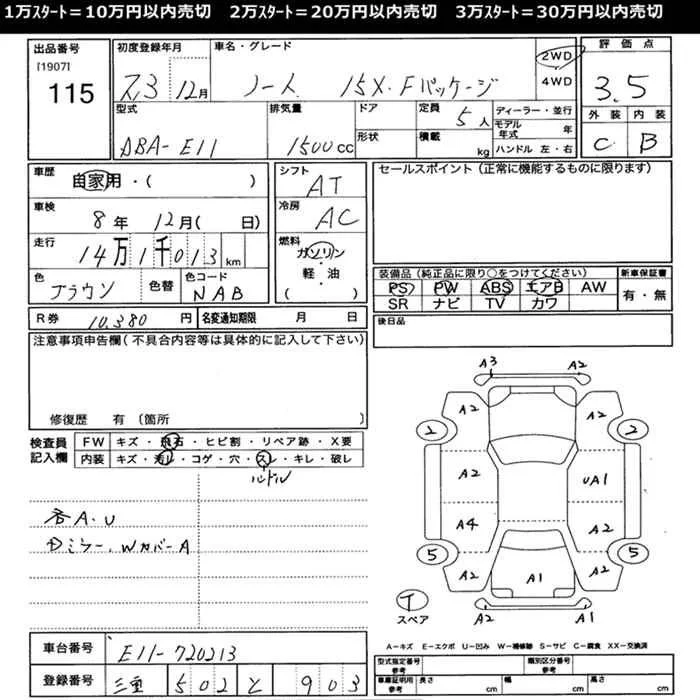 1万ｽﾀｰﾄ＝10万円以内売切　2万ｽﾀｰﾄ＝20万円以内売切　3万ｽﾀｰﾄ＝30万円以内売切
出品番号　初度登録年月　車名・グレード　評価点
[1907]
115　12月　ノート　15X・Fパッケージ　2WD　4WD　3.5
型式　排気量　ドア　定員　5人　ディーラー・並行　外装　内装
モデル年式　年
DBA-E11　1500cc　形状　積載　kg　ハンドル　左・右　C　B
車歴　自家用・(　)　シフト　AT　セールスポイント（正常に機能するものに限ります）
車検　8年　12月(　日)　冷房　AC
走行　14万1千013km　燃料　ガソリン・軽・油
(　)
色　ブラウン　色替　色コード　NAB
装備品（純正品に限り○をつけてください）　新車保証書
PS　PW　ABS　エアB　AW　有・無
SR　ナビ　TV　カワ
R券　10,380円　名変通知期限　月　日　後日品
注意事項申告欄(不具合内容等は具体的に記入して下さい)
修復歴　有〔箇所
検査員記入欄　FW　キズ・飛石・ヒビ割・リペア跡・X要
内装　キズ・汚レ・コゲ・穴・スレ・キレ・破レ
ハンドル
各A.U
ミラー、WカバーA
A3　A2
A2　A2
2　2
A2　UA1
A4　A2
5　5
A2　A1　A2
T
スペア　A2　A1
A－キズ　E－エクボ　U－凹み　W－補修跡　S－サビ　C－腐食　XX－交換済
車台番号　E11-720213
登録番号　三重　502　と　903
型式指定番号　参考　類別区分番号　参考
車庫証明用　参考　長さ　cm　幅　cm　高さ　cm